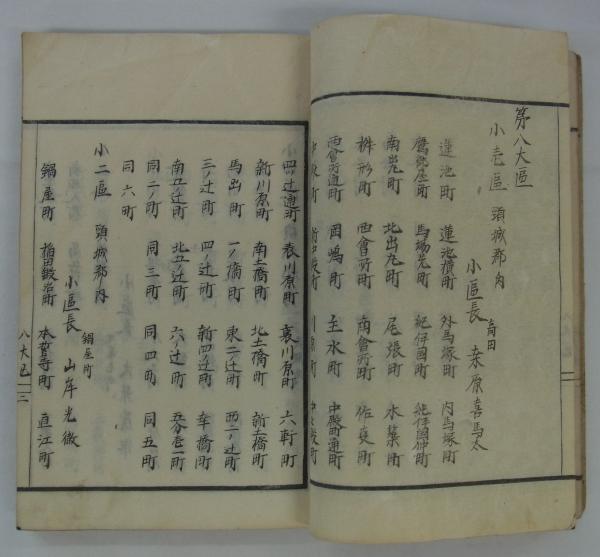 第八大區
小壱區 頭城郡内
小區長 高田 桒原喜馬太
蓮池町 蓮池横町 外馬塚町 内馬塚町
鷹匠町 馬場先町 紀伊國町 紀伊國仲町
南出丸町 北出丸町 尾張町 木築町
桝形町 西會所町 南會所町 作事町
西會所通町 田嶋町 主水町 中殿町通町
四ノ辻通町 表川原町 裏川原町 六軒町
新川原町 南土橋町 北土橋町 新土橋町
馬出町 一ノ橋町 東二ノ辻町 西二ノ辻町
三ノ辻町 四ノ辻町 新四辻町 幸橋町
南五ノ辻町 北五ノ辻町 六ノ辻町
同二ノ町 同三町 同四町 同五町
同六町
小二區 頭城郡内
小區長 鍋屋町 山岸光徴
鍋屋町 稲田鍛冶町 本誓寺町 直江町
八大区 二